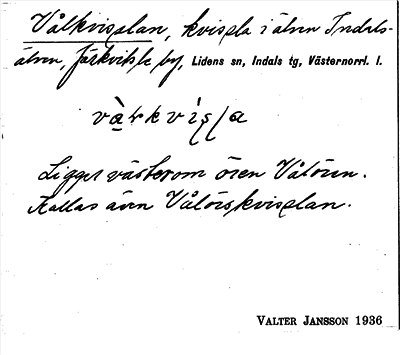 Vålkvisslan, kvissla i älven Indals-
älven, Järkvitsle by, Lidens sn, Indals tg, Västernorrl. l.
Ligger väster om ören Vålören.
Kallas även Vålörskvisslan.
VALTER JANSSON 1936